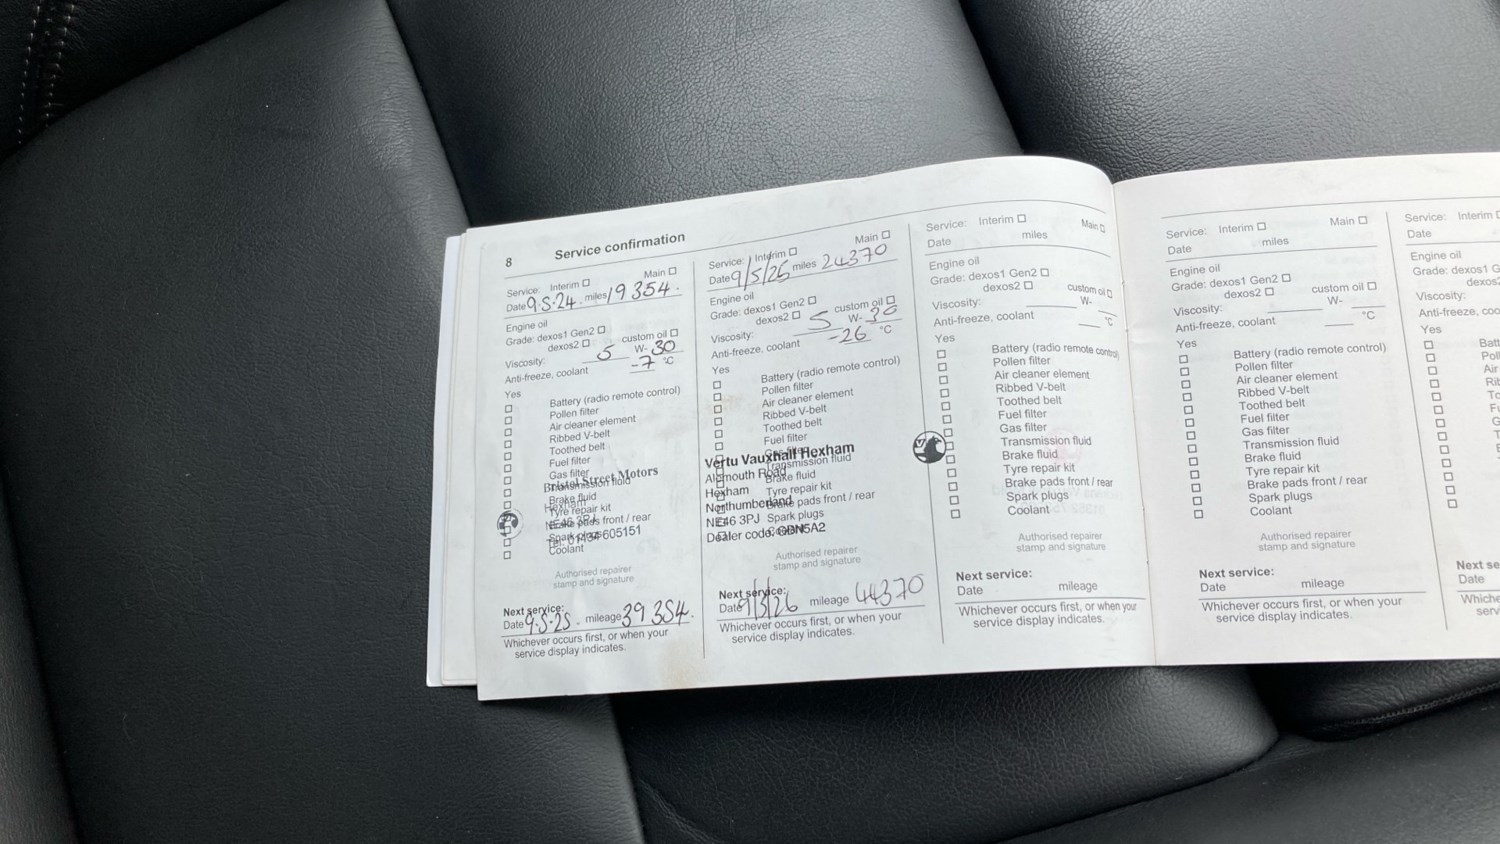 8 Service confirmation
Service: Interim ☐ Main ☐
Date 9.5.24. miles 19354.
Engine oil
Grade: dexos1 Gen2 ☐
dexos2 ☐ custom oil ☐
Viscosity: 5 W- 30
Anti-freeze, coolant -7 °C
Yes
☐ Battery (radio remote control)
☐ Pollen filter
☐ Air cleaner element
☐ Ribbed V-belt
☐ Toothed belt
☐ Fuel filter
☐ Gas filter
Bristol Street Motors
☐ Transmission fluid
☐ Brake fluid
Hexham
☐ Tyre repair kit
NE46 3PJ
☐ Brake pads front / rear
☐ Spark plugs
Tel: 01434 605151
☐ Coolant
Authorised repairer
stamp and signature
Next service:
Date 9.5.25. mileage 39354.
Whichever occurs first, or when your
service display indicates.
Service: Interim ☐ Main ☐
Date miles 24370
Engine oil
Grade: dexos1 Gen2 ☐
dexos2 ☐ custom oil ☐
Viscosity: 5 W- 30
Anti-freeze, coolant -26 °C
Yes
☐ Battery (radio remote control)
☐ Pollen filter
☐ Air cleaner element
☐ Ribbed V-belt
☐ Toothed belt
☐ Fuel filter
☐ Gas filter
Vertu Vauxhall Hexham
☐ Transmission fluid
Alemouth Road
☐ Brake fluid
Hexham
☐ Tyre repair kit
Northumberland
☐ Brake pads front / rear
NE46 3PJ
☐ Spark plugs
☐ Coolant
Dealer code: GDN5A2
Authorised repairer
stamp and signature
Next service:
Date mileage 44370
Whichever occurs first, or when your
service display indicates.
Service: Interim ☐ Main ☐
Date miles
Engine oil
Grade: dexos1 Gen2 ☐
dexos2 ☐ custom oil ☐
Viscosity: W-
Anti-freeze, coolant °C
Yes
☐ Battery (radio remote control)
☐ Pollen filter
☐ Air cleaner element
☐ Ribbed V-belt
☐ Toothed belt
☐ Fuel filter
☐ Gas filter
☐ Transmission fluid
☐ Brake fluid
☐ Tyre repair kit
☐ Brake pads front / rear
☐ Spark plugs
☐ Coolant
Authorised repairer
stamp and signature
Next service:
Date mileage
Whichever occurs first, or when your
service display indicates.
Service: Interim ☐ Main ☐
Date miles
Engine oil
Grade: dexos1 Gen2 ☐
dexos2 ☐ custom oil ☐
Viscosity: W-
Anti-freeze, coolant °C
Yes
☐ Battery (radio remote control)
☐ Pollen filter
☐ Air cleaner element
☐ Ribbed V-belt
☐ Toothed belt
☐ Fuel filter
☐ Gas filter
☐ Transmission fluid
☐ Brake fluid
☐ Tyre repair kit
☐ Brake pads front / rear
☐ Spark plugs
☐ Coolant
Authorised repairer
stamp and signature
Next service:
Date mileage
Whichever occurs first, or when your
service display indicates.
Service: Interim
Date
Engine oil
Grade: dexos1 G
dexos2
Viscosity:
Anti-freeze, coo
Yes
Next se
Date
Whiche
serv